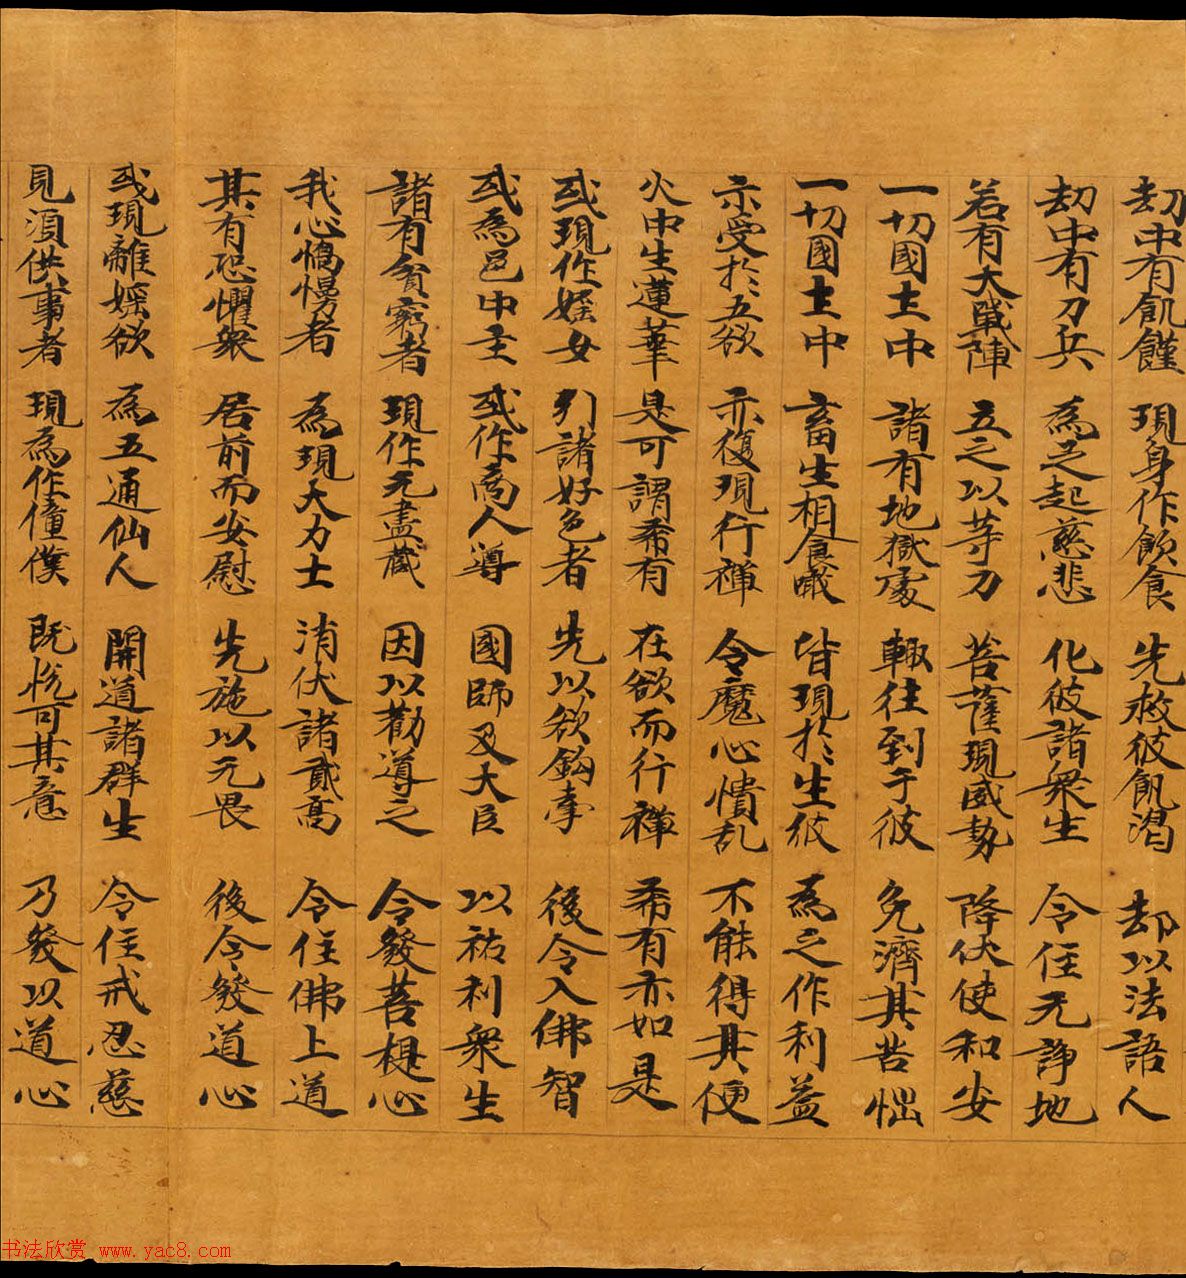 劫中有飢饉 現身作飲食 先救彼飢渴 却以法語人
劫中有刀兵 為之起慈悲 化彼諸衆生 令住无諍地
若有大戰陣 立之以等力 菩薩現威勢 降伏使和安
一切國土中 諸有地獄處 輙往到于彼 免濟其苦惱
一切國土中 畜生相食噉 皆現於生彼 為之作利益
示受於五欲 亦復現行禅 令魔心憒乱 不能得其便
火中生蓮華 是可謂希有 在欲而行禅 希有亦如是
或現作婬女 引諸好色者 先以欲鈎牽 後令入佛智
或為邑中主 或作商人導 國師及大臣 以祐利衆生
諸有貧窮者 現作无盡藏 因以勸導之 令發菩提心
我心憍慢者 為現大力士 消伏諸貢高 令住佛上道
其有恐懼衆 居前而安慰 先施以无畏 後令發道心
或現離婬欲 為五通仙人 開道諸群生 令住戒忍慈
見須供事者 現為作僮僕 既悅可其意 乃發以道心
书法欣赏 www.yac8.com